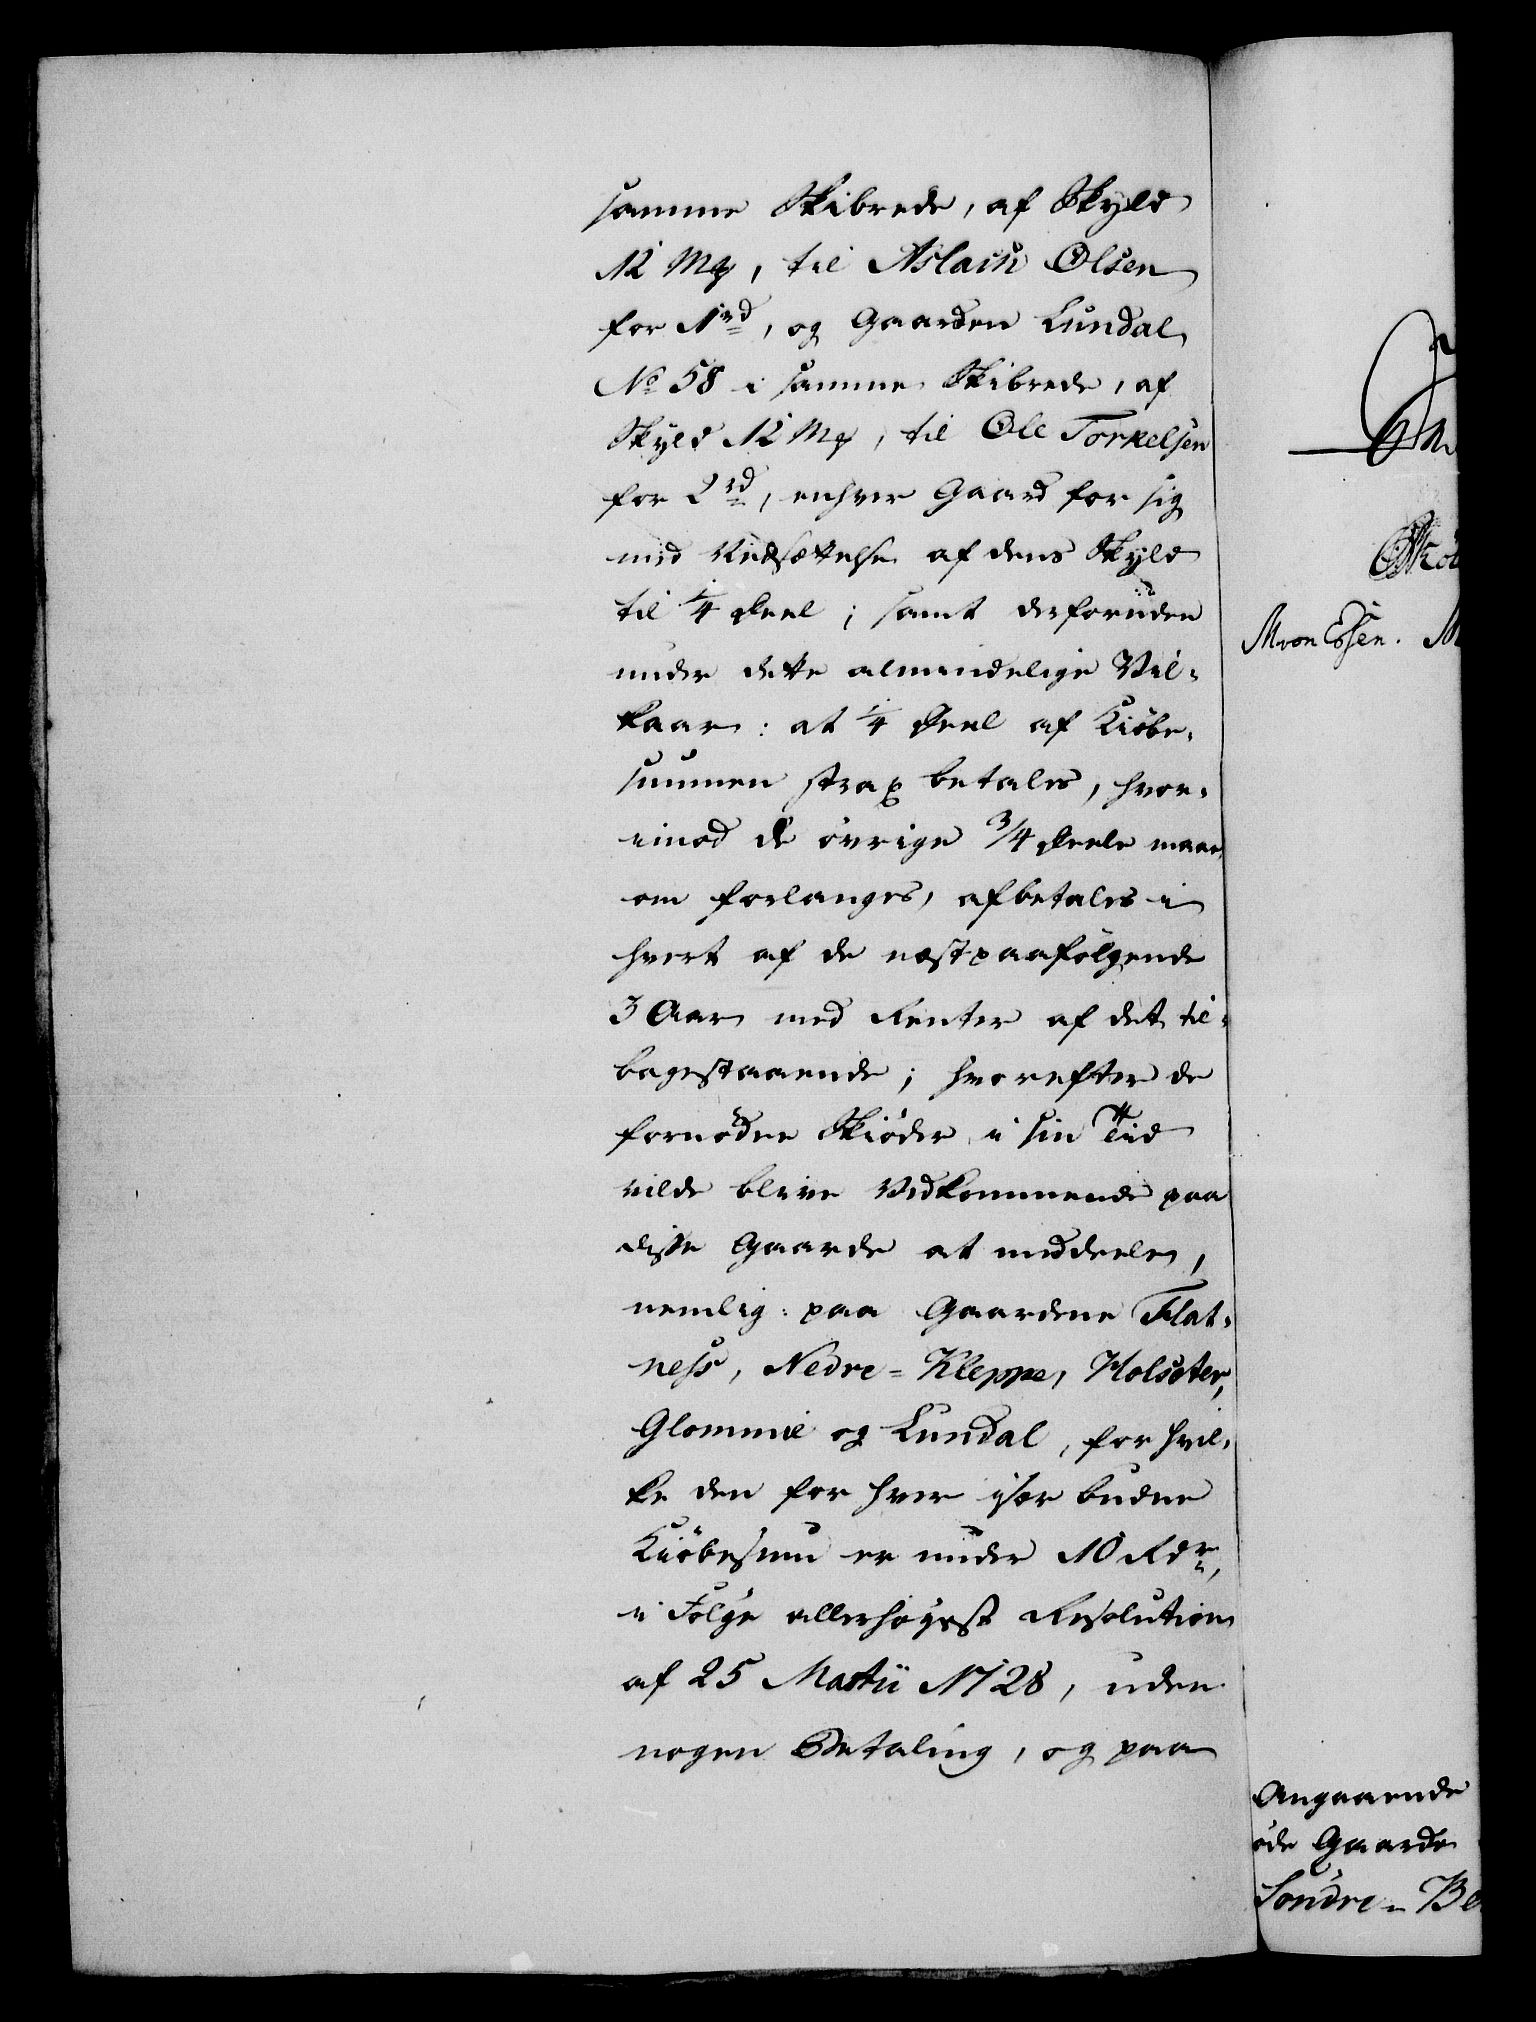 samme Skibrede, af Skyld
12 Mk, til Aslach Olsen
for 1 rd, og Gaarden Lundal
No 58 i samme Skibrede, af
Skyld 12 Mk, til Ole Torkelsen
for 2 rd, enhver Gaard for sig
med Nedsættelse af dens Skyld
til 1/4 Deel; samt desforuden
under dette almindelige Vil-
kaar: at 1/4 Deel af Kiøbe-
summen strax betales, hvor-
imod de øvrige 3/4 Deele maae,
om forlanges, afbetales i
hvert af de næstpaafølgende
3 Aar med Renter af det til-
bagestaaende; hvorefter de
fornødne Skiøder i sin Tiid
vilde blive Vedkommende paa
disse Gaarde at meddeele,
nemlig: paa Gaardene Flat-
ness, Nedre-Kleppe, Holseter,
Glomme og Lundal, for hvil-
ke den for hver især budne
Kiøbesum er under 10 Rdr,
i Følge allerhøyest Resolution
af 25 Martii 1728, uden
nogen Betaling, og paa
M von Essen.
Angaaende
øde Gaarde
Søndre-